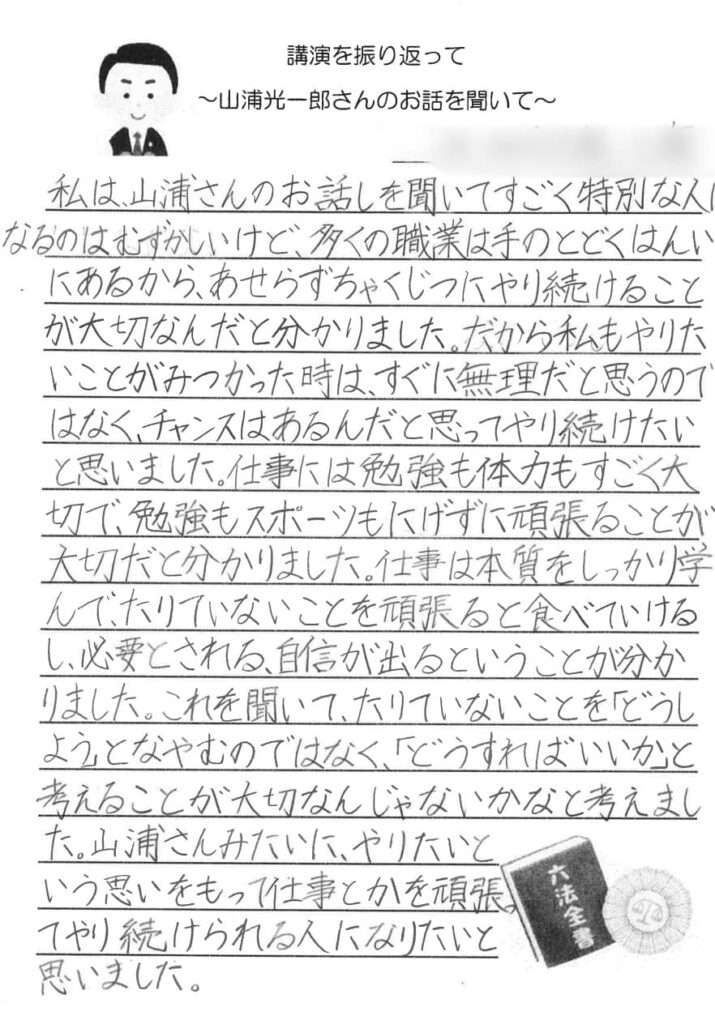 講演を振り返って
～山浦光一郎さんのお話を聞いて～
私は、山浦さんのお話しを聞いてすごく特別な人に
なるのはむずかしいけど、多くの職業は手のとどくはんい
にあるから、あせらずちゃくじつにやり続けること
が大切なんだと分かりました。だから私もやりた
いことがみつかった時は、すぐに無理だと思うので
はなく、チャンスはあるんだと思ってやり続けたい
と思いました。仕事には勉強も体力もすごく大
切で、勉強もスポーツもにげずに頑張ることが
大切だと分かりました。仕事は本質をしっかり学
んで、たりていないことを頑張ると食べていける
し、必要とされる、自信が出るということが分か
りました。これを聞いて、たりていないことを「どうし
よう」となやむのではなく、「どうすればいいか」と
考えることが大切なんじゃないかなと考えまし
た。山浦さんみたいに、やりたいと
いう思いをもって仕事とかを頑張っ
てやり続けられる人になりたいと
思いました。
六法全書